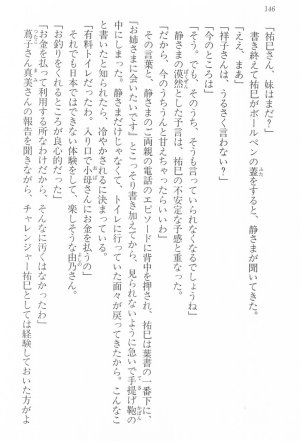 146
「祐巳さん、妹はまだ?」
書き終えて祐巳がボールペンの蓋をすると、静さまが聞いてきた。
「ええ、まあ」
「祥子さんは、うるさく言わない?」
「今のところは」
「そう。でも、そのうち、そうも言っていられなくなるでしょうね」
静さまの漠然とした予言は、祐巳の不安定な予感と重なった。
「だから、今のうちうんと甘えちゃったらいいわ」
その言葉と、静さまのご両親の電話のエピソードに背中を押され、祐巳は葉書の一番下に、
「お姉さまに会いたいです」とこっそり書き加えてから、見られないように急いで手提げ鞄の
中にしまった。静さまだけじゃなくて、トイレに行っていた面々が戻ってきたから。こんなこ
と書いたと知られたら、冷やかされるに決まっている。
「有料トイレだったわ。入り口で小母さんにお金を払うの」
それでも日本ではできない体験をして、楽しそうな由乃さん。
「お釣りをくれるところが良心的だった」
「お金を払って利用する所なわけだから、そんなに汚くはなかったわ」
蔦子さん真美さんの報告を聞きながら、チャレンジャー祐巳としては経験しておいた方がよ